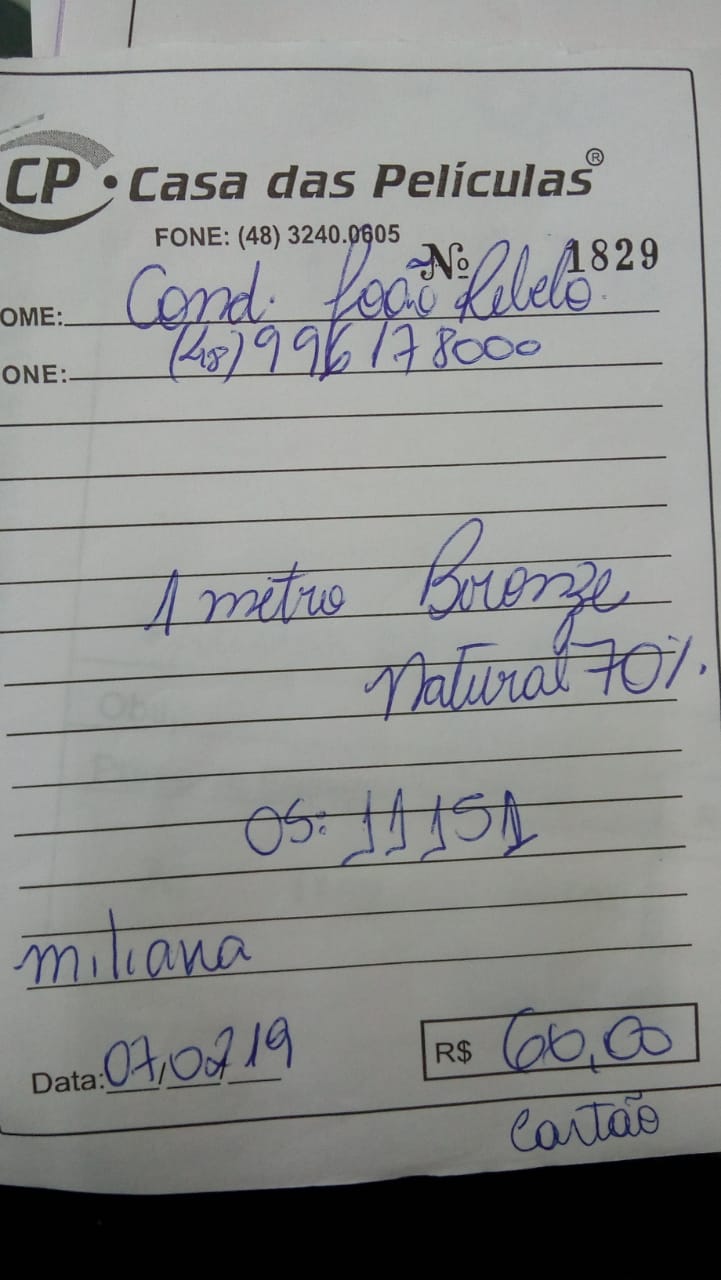 CP • Casa das Películas®
FONE: (48) 3240.0605
Nº 1829
OME: Cond. João Rebelo
ONE: (48) 996178000
1 metro Bronze
Natural 70%.
OS: 11151
miliana
Data: 07,02 19
R$ 60,00
Cartão